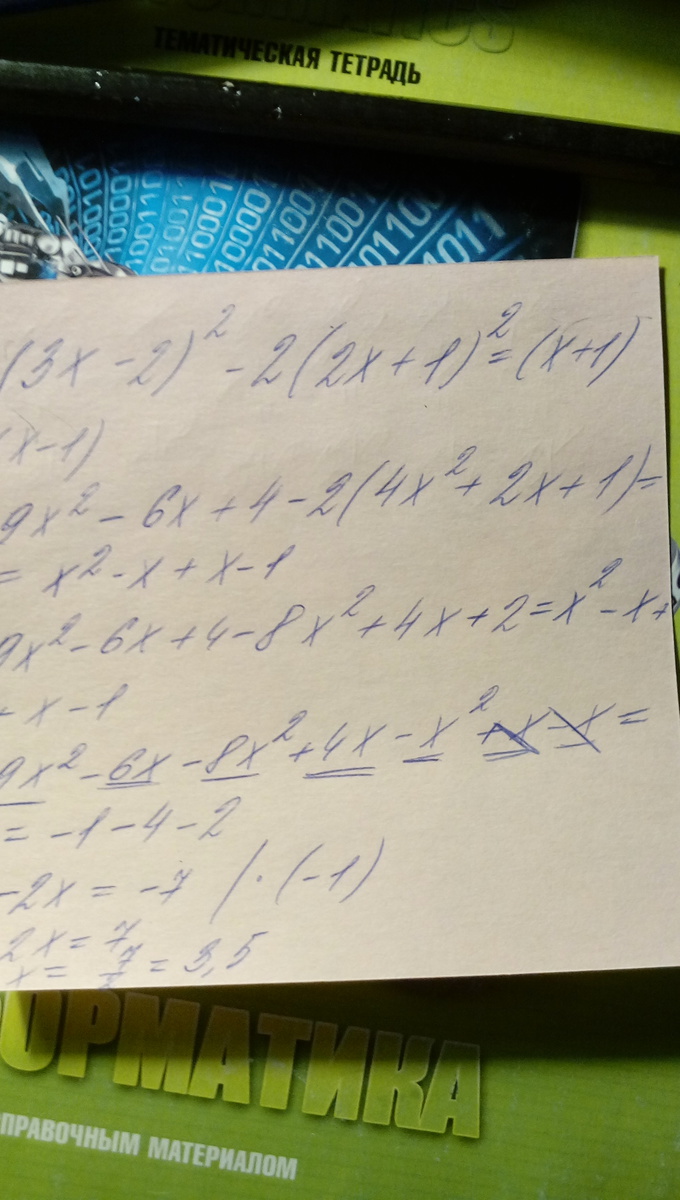 ТЕМАТИЧЕСКАЯ ТЕТРАДЬ
(3x-2)² - 2(2x+1)² = (x+1)
(x-1)
9x² - 6x + 4 - 2(4x² + 2x + 1) =
= x² - x + x - 1
9x² - 6x + 4 - 8x² + 4x + 2 = x² - x +
+ x - 1
9x² - 6x - 8x² + 4x - x² + x - x =
= -1 - 4 - 2
-2x = -7 | · (-1)
2x = 7
x = 7/2 = 3,5
ОРМАТИКА
ПРАВОЧНЫМ МАТЕРИАЛОМ